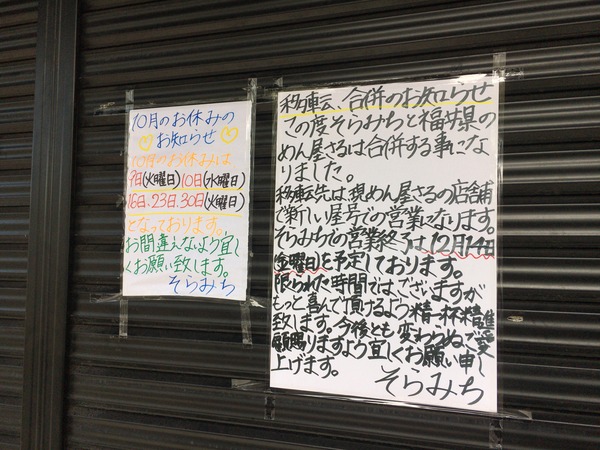 10月のお休みの
お知らせ
10月のお休みは
9日(火曜日)10日(水曜日)
16日、23日、30日(火曜日)
となっております。
お間違えないよう宜し
くお願い致します。
そらみち
移転、合併のお知らせ
この度そらみちと福井県の
めん屋さるは合併する事にな
りました。
移転先は現めん屋さるの店舗
で新しい屋号での営業になります。
そらみちでの営業終了は12月14日
(金曜日)を予定しております。
限られた時間ではございますが
もっと喜んで頂けるよう精一杯精進
致します。今後とも変わらぬご愛
顧賜りますよう宜しくお願い申し
上げます。
そらみち